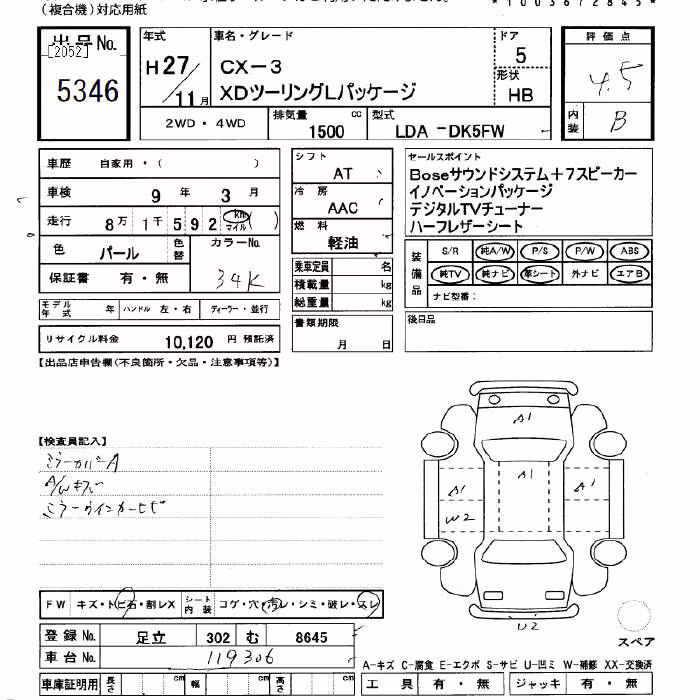 (複合機)対応用紙
*1003672845*
出品No.
[2052]
5346
年式
H27/11月
車名・グレード
CX-3
XDツーリングLパッケージ
ドア
5
形状
HB
評価点
4.5
内装
B
2WD・4WD
排気量
1500 cc
型式
LDA -DK5FW
車歴 自家用・( )
車検 9年 3月
走行 8万1千592 km マイル ( )
色 パール 色替 カラーNo. 34K
保証書 有・無
シフト
AT
冷房
AAC
燃料
軽油
乗車定員 名
積載量 kg
総重量 kg
セールスポイント
Boseサウンドシステム+7スピーカー
イノベーションパッケージ
デジタルTVチューナー
ハーフレザーシート
装備品
S/R 純A/W P/S P/W ABS
純TV 純ナビ 革シート 外ナビ エアB
ナビ型番:
モデル年式 年 ハンドル 左・右 ディーラー・並行
リサイクル料金 10,120 円 預託済
書類期限
月 日
後日品
【出品店申告欄(不良箇所・欠品・注意事項等)】
【検査員記入】
ミラーカバーA
A/Wキズ
ミラーウインカーヒビ
A1
A1
A1
A1
W2
U2
スペア
FW キズ・トビ石・割レX シート内装 コゲ・穴・汚レ・シミ・破レ・スレ
登録No. 足立 302 む 8645
車台No. 119306
A-キズ C-腐食 E-エクボ S-サビ U-凹ミ W-補修 XX-交換済
車庫証明用 長さ cm 幅 cm 高さ cm
工具 有・無 ジャッキ 有・無